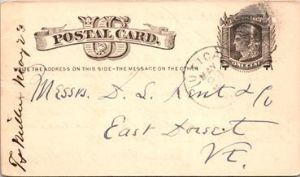 U S
POSTAL CARD.
WRITE THE ADDRESS ON THIS SIDE - THE MESSAGE ON THE OTHER
ONE CENT
UTICA
MAY
Messrs. D. L. Kent & Co
East Dorset
Vt.
May 23